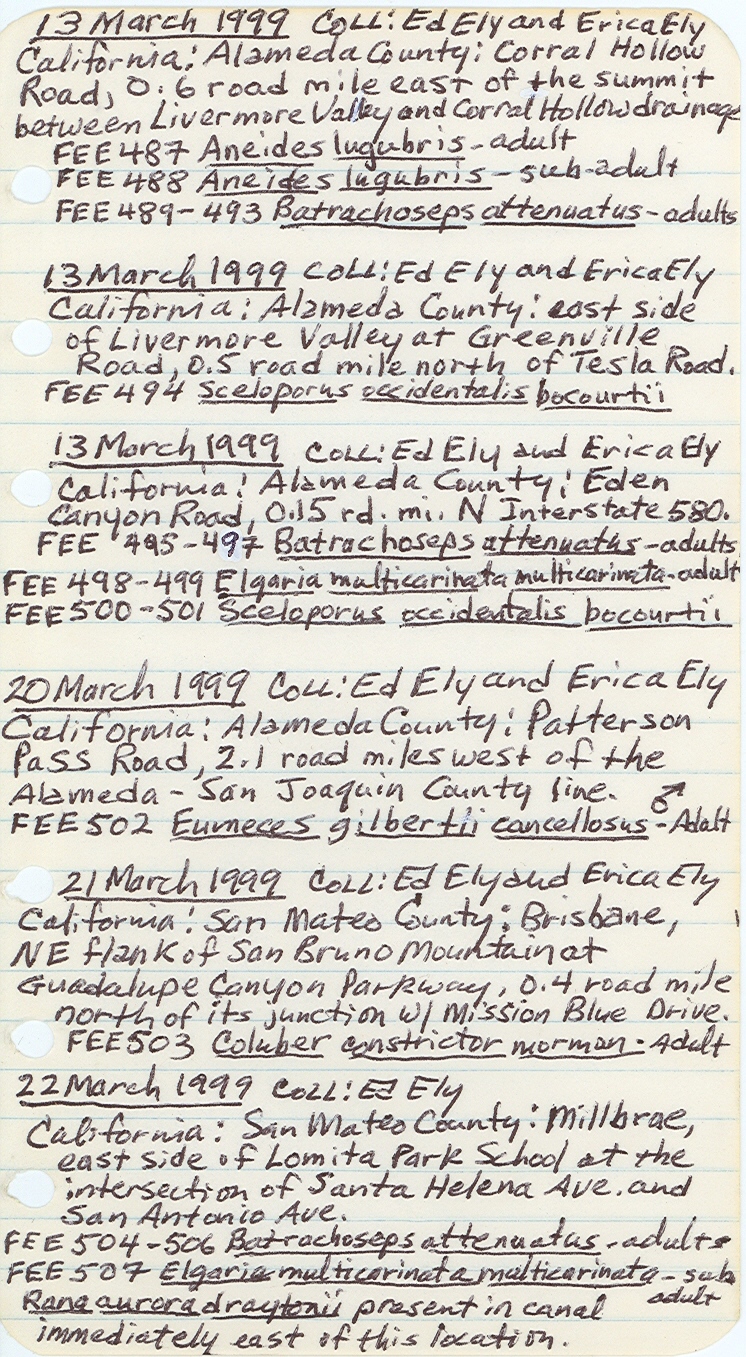 13 March 1999 COLL: Ed Ely and Erica Ely
California: Alameda County: Corral Hollow
Road, 0.6 road mile east of the summit
between Livermore Valley and Corral Hollow drainage
FEE 487 Aneides lugubris - adult
FEE 488 Aneides lugubris - sub-adult
FEE 489-493 Batrachoseps attenuatus - adults
13 March 1999 COLL: Ed Ely and Erica Ely
California: Alameda County: east side
of Livermore Valley at Greenville
Road, 0.5 road mile north of Tesla Road.
FEE 494 Sceloporus occidentalis bocourtii
13 March 1999 COLL: Ed Ely and Erica Ely
California: Alameda County: Eden
Canyon Road, 0.15 rd. mi. N Interstate 580.
FEE 495-497 Batrachoseps attenuatus - adults
FEE 498-499 Elgaria multicarinata multicarinata - adult
FEE 500-501 Sceloporus occidentalis bocourtii
20 March 1999 COLL: Ed Ely and Erica Ely
California: Alameda County: Patterson
Pass Road, 2.1 road miles west of the
Alameda - San Joaquin County line. ♂
FEE 502 Eumeces gilbertii cancellosus - Adalt
21 March 1999 COLL: Ed Ely and Erica Ely
California: San Mateo County: Brisbane,
NE flank of San Bruno Mountain at
Guadalupe Canyon Parkway, 0.4 road mile
north of its junction w/ Mission Blue Drive.
FEE 503 Coluber constrictor mormon - Adult
22 March 1999 COLL: Ed Ely
California: San Mateo County: Millbrae,
east side of Lomita Park School at the
intersection of Santa Helena Ave. and
San Antonio Ave.
FEE 504-506 Batrachoseps attenuatus - adults
FEE 507 Elgaria multicarinata multicarinata - sub
adult
Rana aurora draytonii present in canal
immediately east of this location.